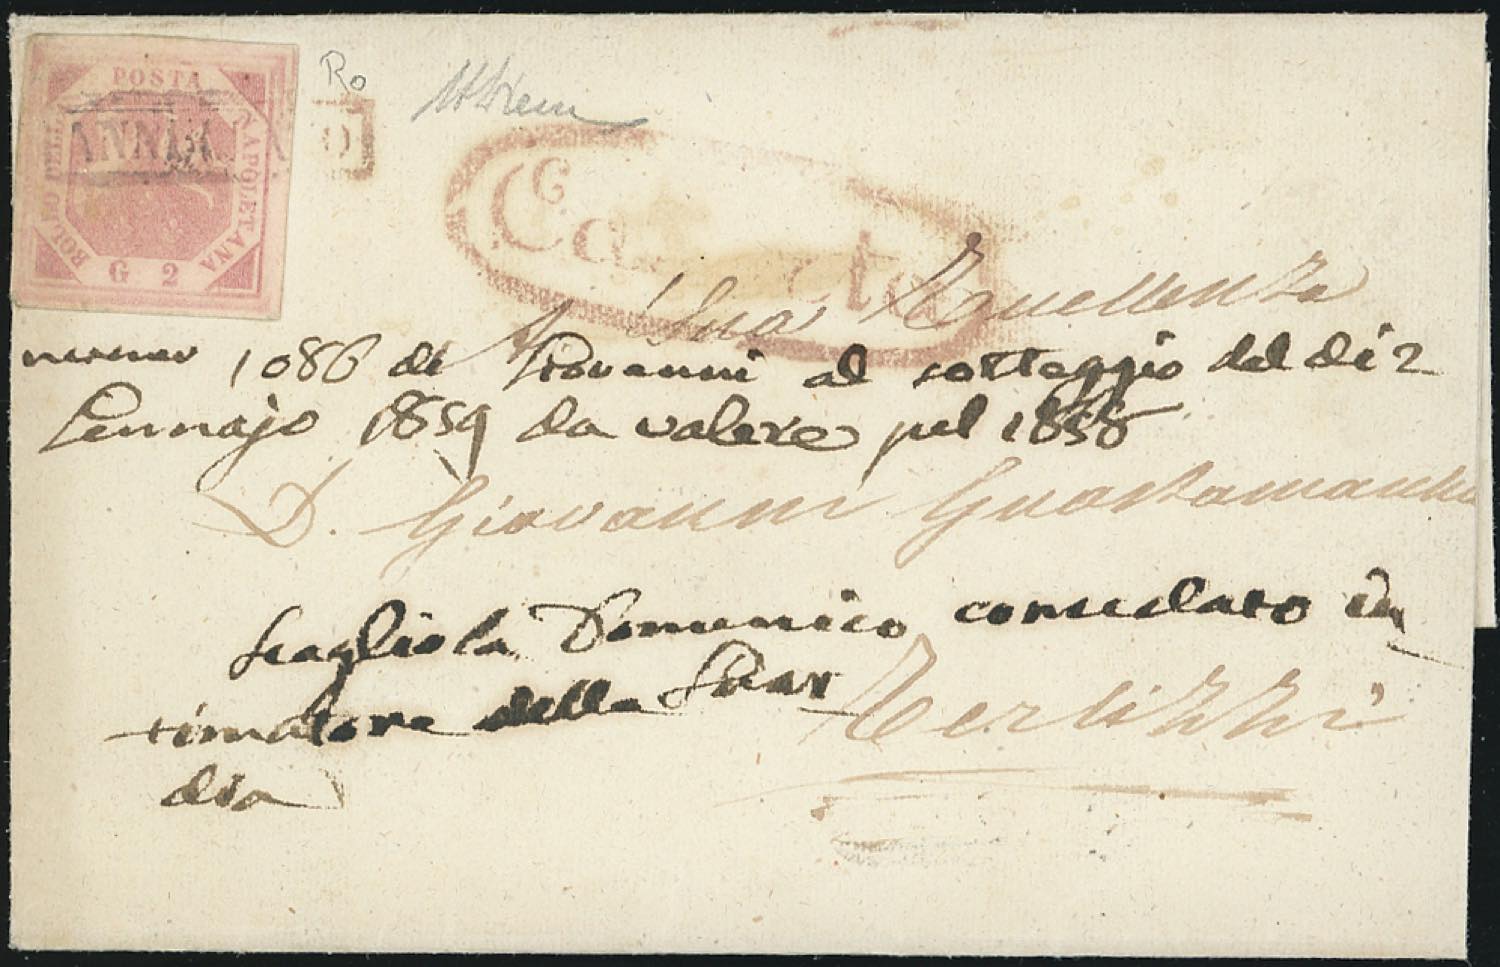 POSTA
NAPOLETANA
BOLLO DELLA
G 2
ANNULLATO
Ro
Sua Eccellenza
numero 1086 di Giovanni al sorteggio del dì 2
Gennajo 1859 da valere pel 1858
D. Giovanni
Scagliola Domenico consedato in
timatore della Guar
dia
Terlizzi